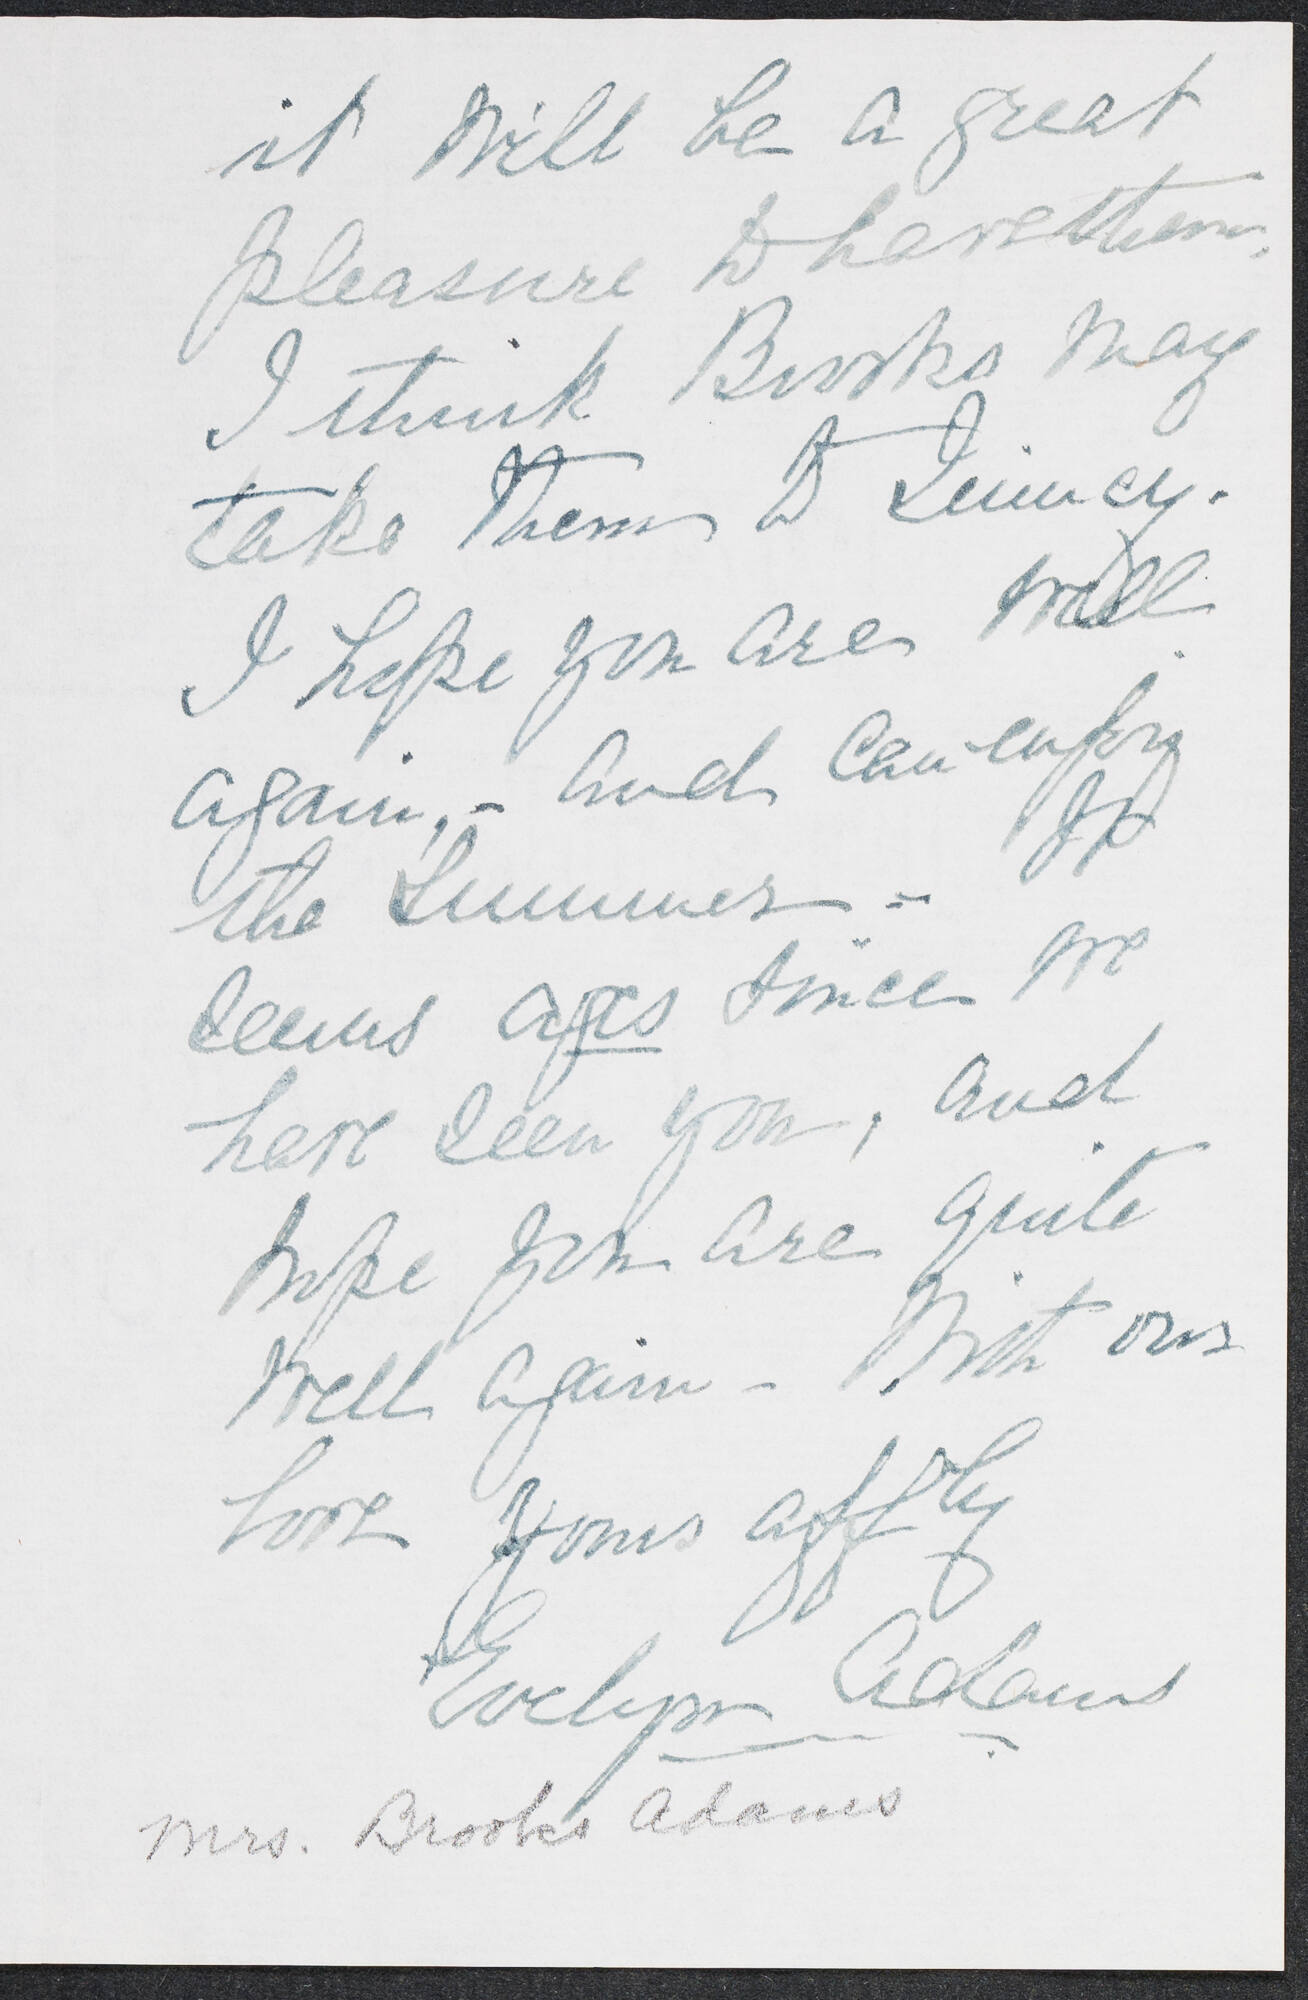 it will be a great
pleasure to have them.
I think Brooks may
take them to Quincy.
I hope you are well
again, - and can enjoy
the Summer - It
seems ages since we
have seen you, and
hope you are quite
well again - With our
love Yours affly
Evelyn Adams
Mrs. Brooks Adams